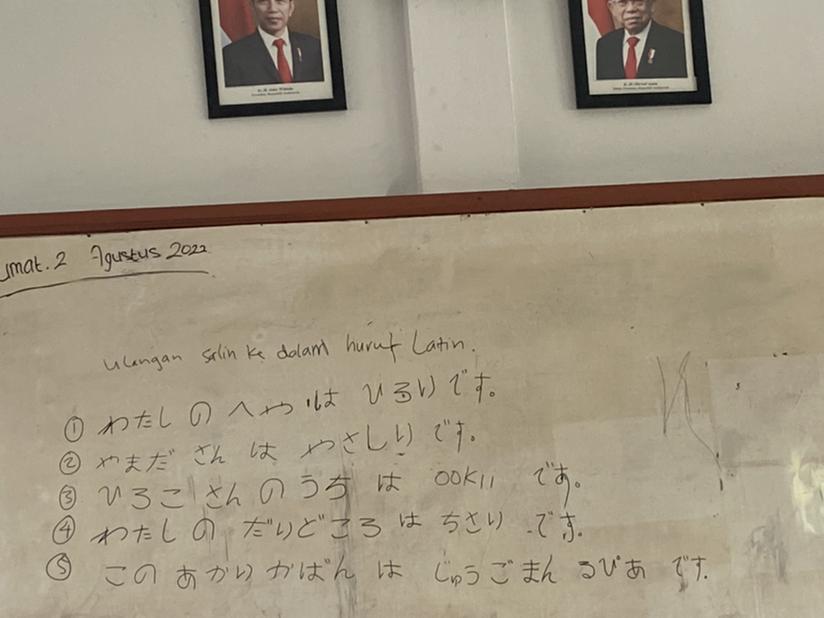 umat. 2 Agustus 2022
ulangan salin ke dalam huruf Latin.
① わたし の へや は ひるい です。
② やまだ さん は やさしい です。
③ ひろこ さん の うち は OOKII です。
④ わたし の だいどころ は ちさい です.
⑤ この あかい かばん は じゅうごまん るぴあ です.